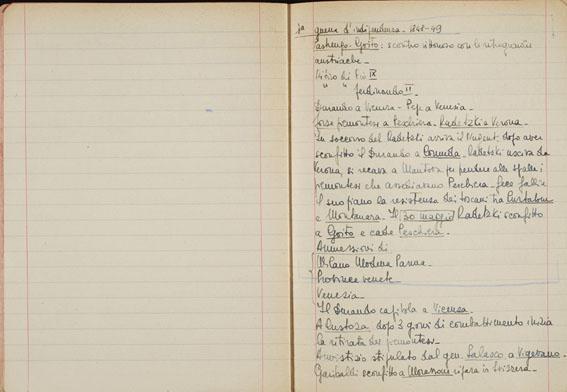 1a guerra d'indipendenza - 1848-49
Pastrengo - Goito: scontro vittorioso con le retroguardie
austriache -
Ritiro di Pio IX
" " Ferdinando II -
Durando a Vicenza - Pepe a Venezia -
Forze piemontesi a Peschiera - Radetzki a Verona -
In soccorso del Radetski arriva il Nugent, dopo aver
sconfitto il Durando a Cornuda. Radetski usciva da
Verona, si recava a Mantova per prendere alle spalle i
piemontesi che assediavano Peschiera - fece fallire
il suo piano la resistenza dei toscani tra Curtatone
e Montanara. Il 30 maggio Radetski sconfitto
a Goito e cade Peschiera -
Annessioni di
Milano Modena Parma -
Province venete
Venezia -
Il Durando capitola a Vicenza.
A Custoza dopo 3 giorni di combattimento inizia
la ritirata dei piemontesi -
Armistizio stipulato dal gen. Salasco a Vigevano -
Garibaldi sconfitto a Morazzone ripara in Svizzera -